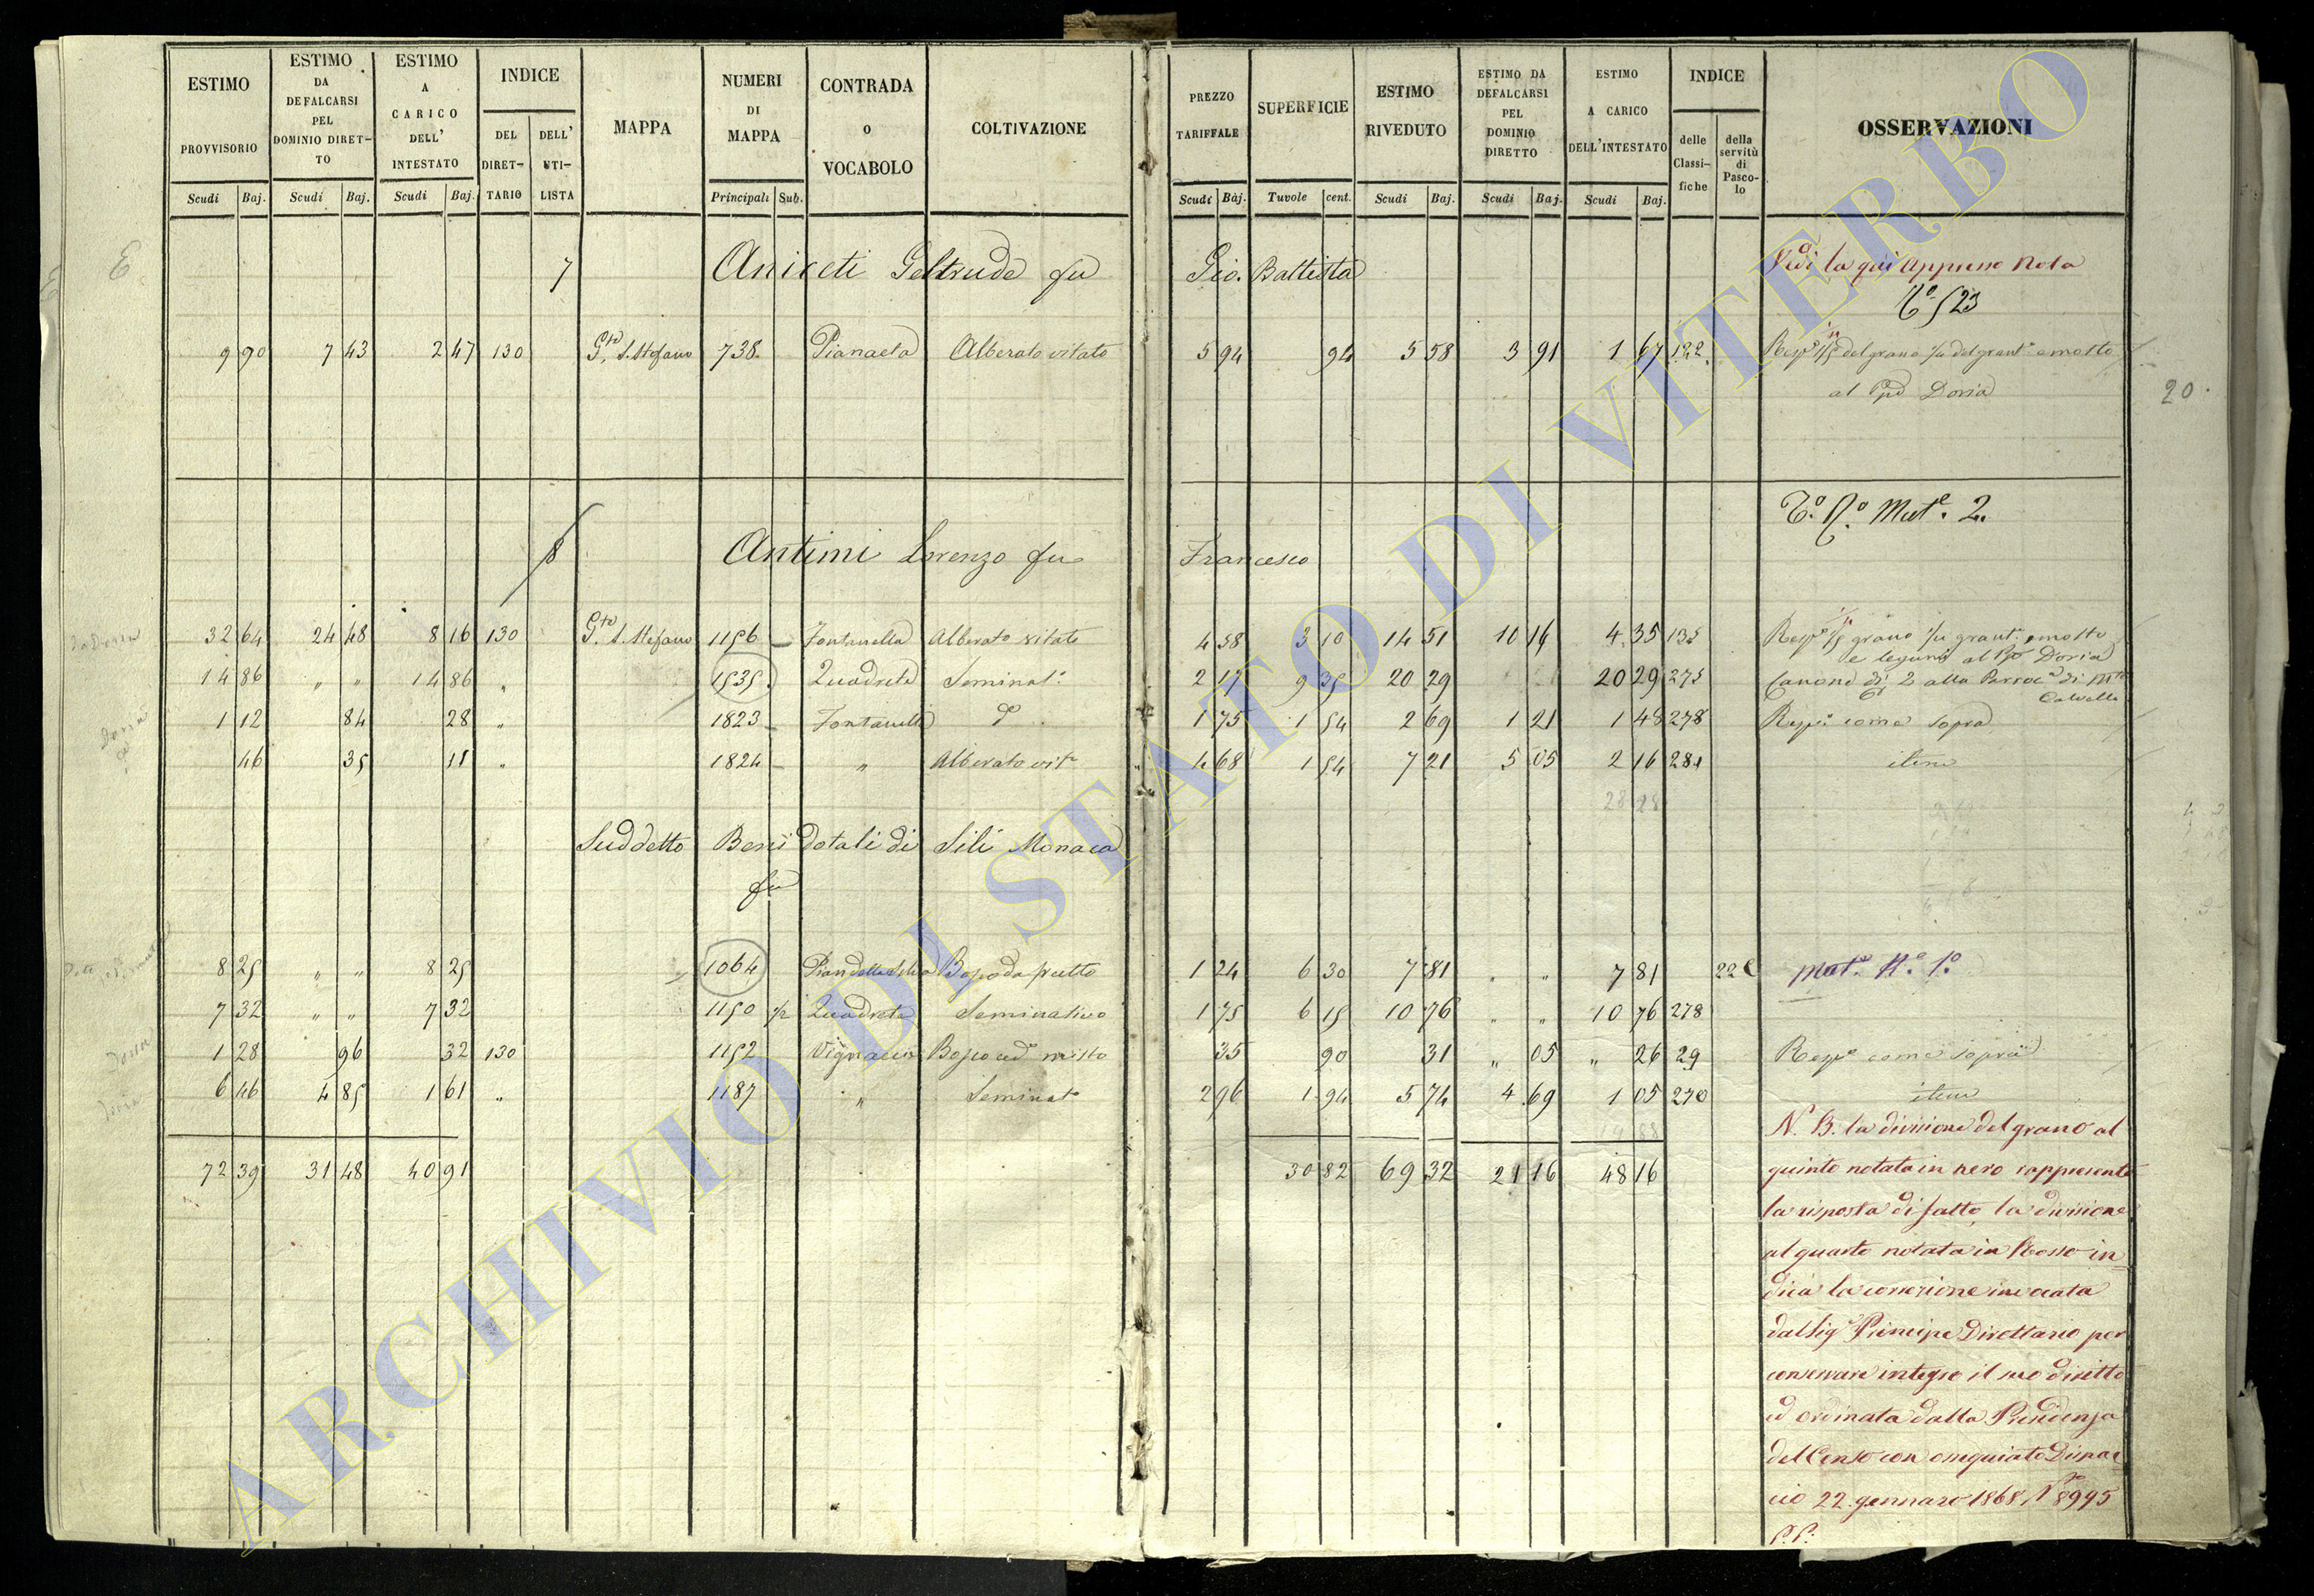 ESTIMO PROVVISORIO
ESTIMO DA DEFALCARSI PEL DOMINIO DIRETTO
ESTIMO A CARICO DELL' INTESTATO
INDICE
DEL DIRETTARIO
DELL' UTILISTA
MAPPA
NUMERI DI MAPPA
CONTRADA O VOCABOLO
COLTIVAZIONE
PREZZO TARIFFALE
SUPERFICIE
ESTIMO RIVEDUTO
ESTIMO DA DEFALCARSI PEL DOMINIO DIRETTO
ESTIMO A CARICO DELL'INTESTATO
INDICE
delle Classifiche
della servitù di Pascolo
OSSERVAZIONI
Scudi Baj. Scudi Baj. Scudi Baj. Principali Sub. Scudi Baj. Tavole cent. Scudi Baj. Scudi Baj. Scudi Baj.
7 Aniceti Geltrude fu Gio. Battista Vedi la qui appresso Nota
523
9 90 7 43 2 47 130 S. Stefano 738 Pianaeta Alberato vitato 5 94 94 5 58 3 91 1 67 122 del grano e mosto
al Doria
20
Mut. 2.
8 Antimi Lorenzo fu Francesco
32 64 24 48 8 16 130 S. Stefano 1156 Fontanella Alberato vitato 4 58 3 10 14 51 10 16 4 35 135 grano e mosto
e legumi al Doria
14 86 " " 14 86 " 1535 Quadrete Seminat. 2 17 9 35 20 29 20 29 275 Canone di 2 alla di
Calvello
1 12 84 28 " 1823 Fontanella d° 1 75 1 54 2 69 1 21 1 48 278 come sopra
46 35 11 " 1824 " Alberato vit° 4 68 1 54 7 21 5 05 2 16 281 item
28 28
Suddetto Beni Dotali di Sili Monaca
fu
8 25 " " 8 25 1064 Bosco da frutto 1 24 6 30 7 81 " " 7 81 22 Mut. N° 1°
7 32 " " 7 32 1150 Quadrete Seminativo 1 75 6 15 10 76 " " 10 76 278
1 28 96 32 130 1152 Bosco ced° misto 35 90 31 " 05 " 26 29 come sopra
6 46 4 85 1 61 " 1187 " Seminat° 2 96 1 94 5 74 4 69 1 05 270 item
N. B. la divisione del grano al
72 39 31 48 40 91 30 82 69 32 21 16 48 16 quinto notata in nero rappresenta
la risposta di fatto, la divisione
al quarto notata in Rosso in=
dica la correzione invocata
dal Sig. Principe Direttario per
conservare integro il suo diritto
ed ordinata dalla Presidenza
del Censo con ossequiato Dispac=
cio 22 gennaro 1868 N° 8995
P.P.
ARCHIVIO DI STATO DI VITERBO